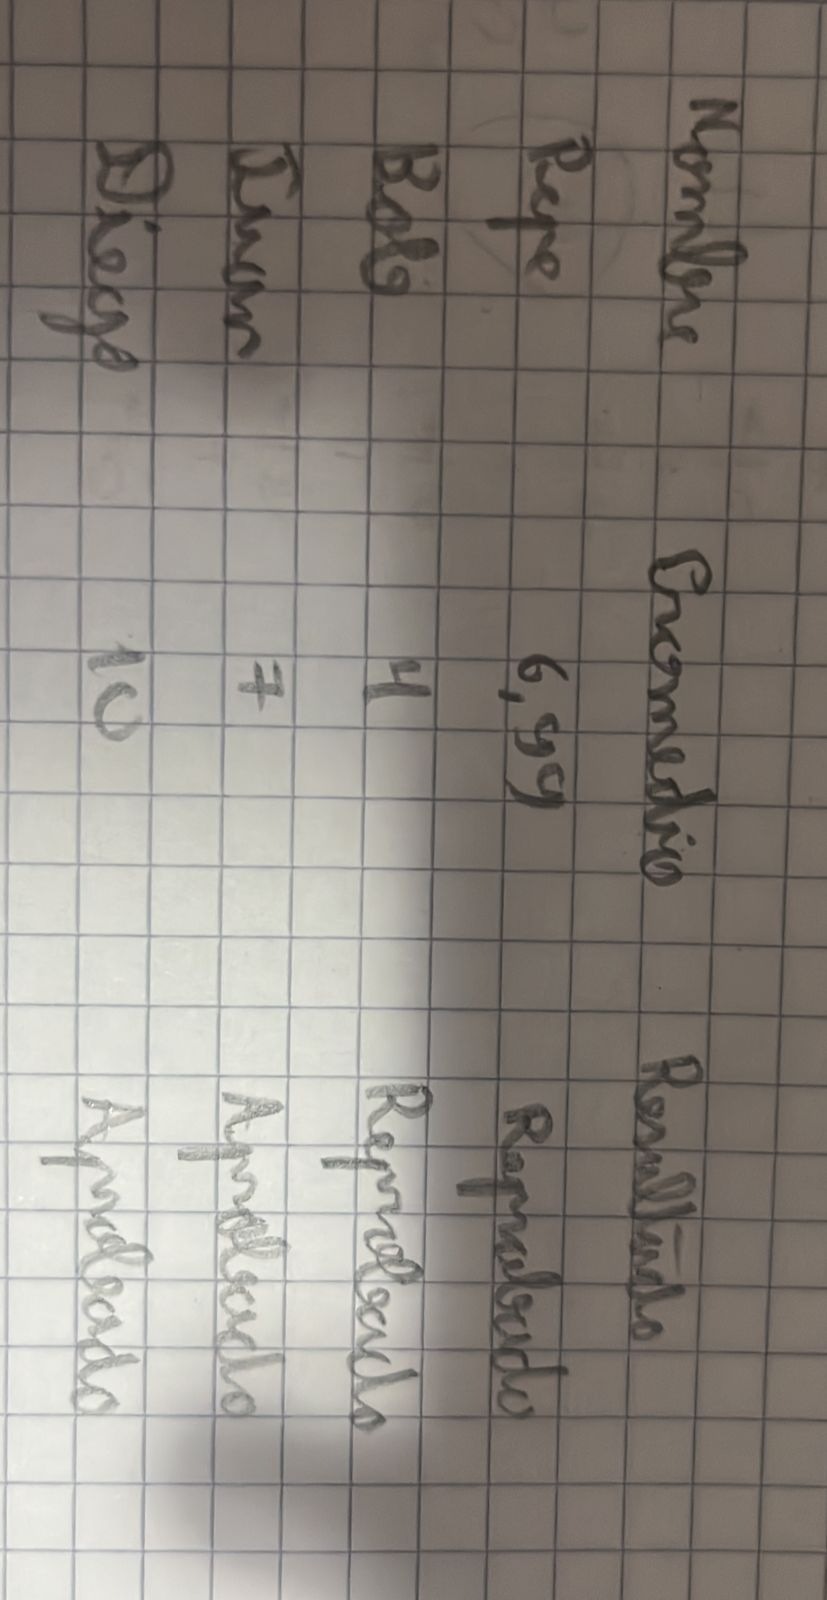 Nombre Promedio Resultado
Pepe 6,99 Reprobado
Bob 4 Reprobado
Juan 7 Aprobado
Diego 10 Aprobado